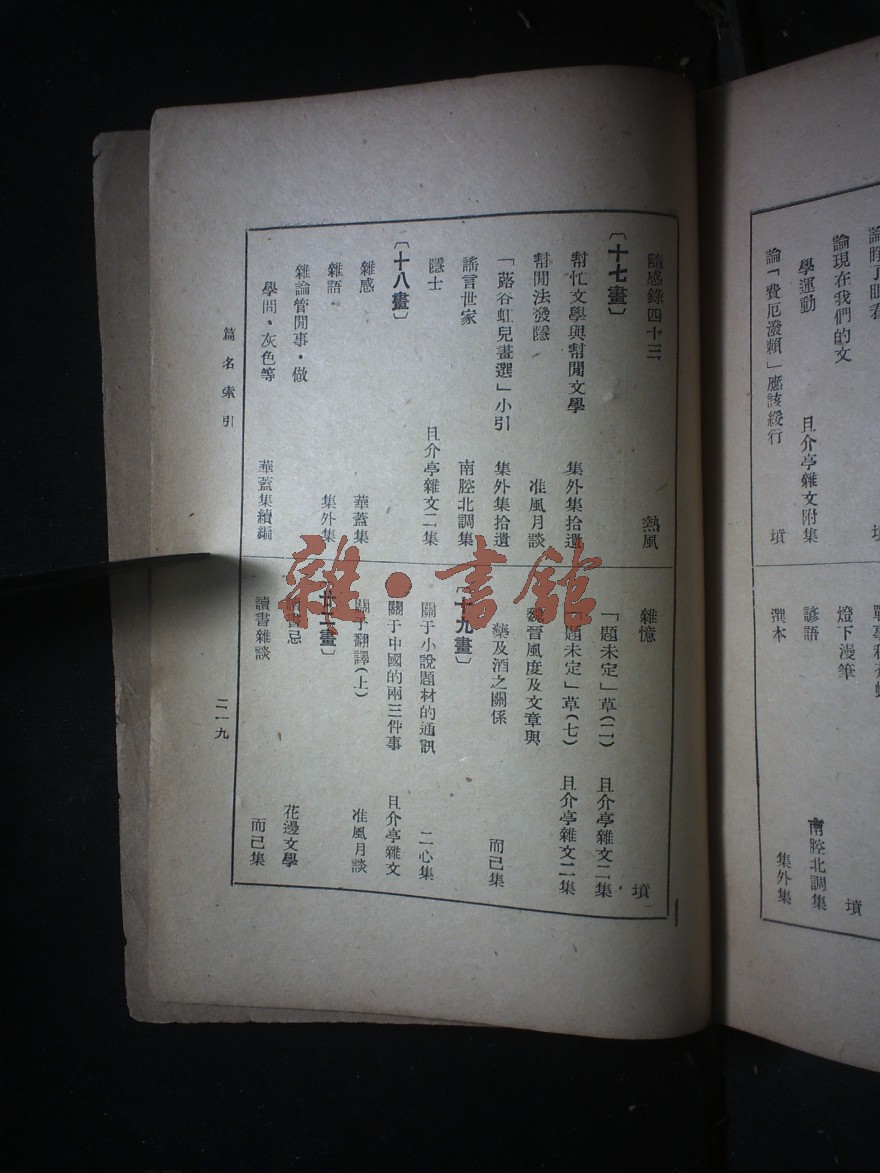 論「費厄潑賴」應該緩行　墳
論現在我們的文
學運動　且介亭雜文附集
燈下漫筆　墳
諺語　南腔北調集
隨感錄四十三　熱風
〔十七畫〕
幫忙文學與幫閒文學　集外集拾遺
幫閒法發隱　准風月談
「蕗谷虹兒畫選」小引　集外集拾遺
謠言世家　南腔北調集
隱士　且介亭雜文二集
〔十八畫〕
雜感　華蓋集
雜語　集外集
雜論管閒事・做
學問・灰色等　華蓋集續編
雜憶　墳
「題未定」草(二)　且介亭雜文二集
「題未定」草(七)　且介亭雜文二集
魏晉風度及文章與
藥及酒之關係　而已集
〔十九畫〕
關于小說題材的通訊　二心集
關于中國的兩三件事　且介亭雜文
關于翻譯(上)　准風月談
讀書忌　花邊文學
讀書雜談　而已集
篇名索引
二一九
雜・書館